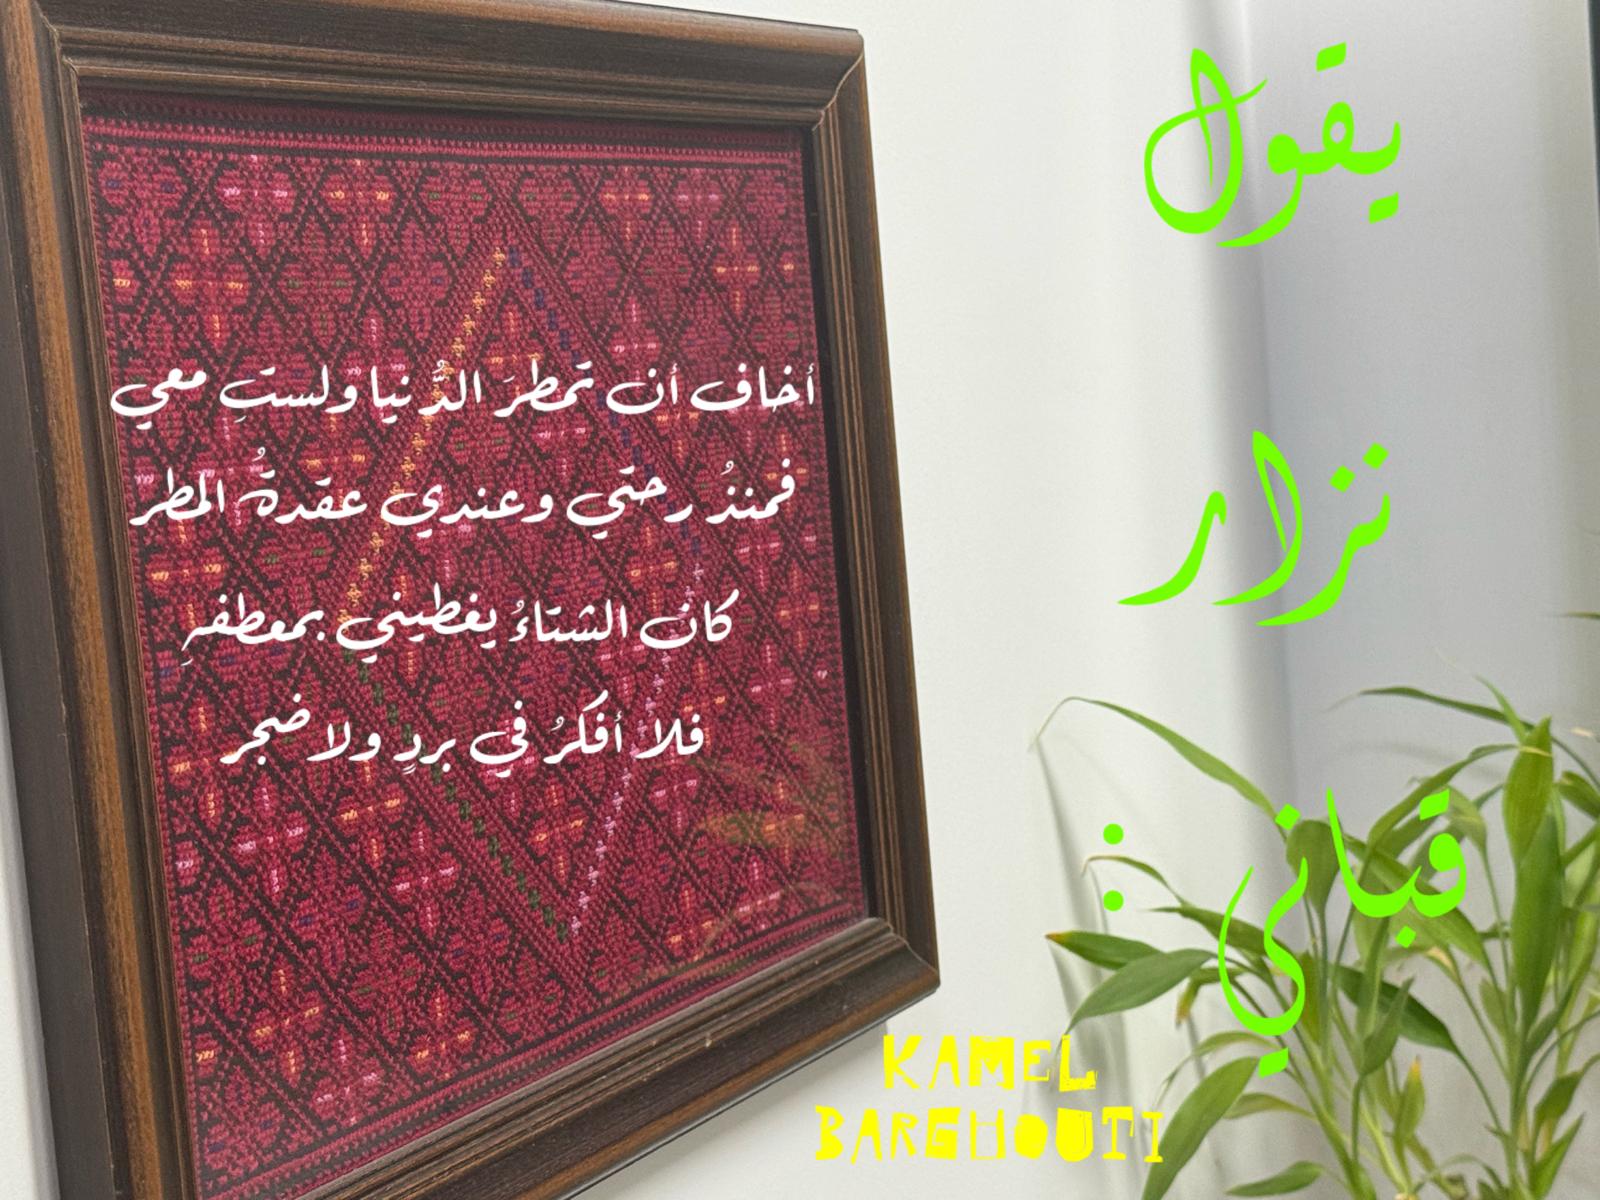 يقول
نزار
قباني :
أخاف أن تمطرَ الدُّنيا ولستِ معي
فمنذُ رحتي وعندي عقدةُ المطر
كان الشتاءُ يغطيني بمعطفهِ
فلا أفكرُ في بردٍ ولا ضجر
KAMEL
BARGHOUTI